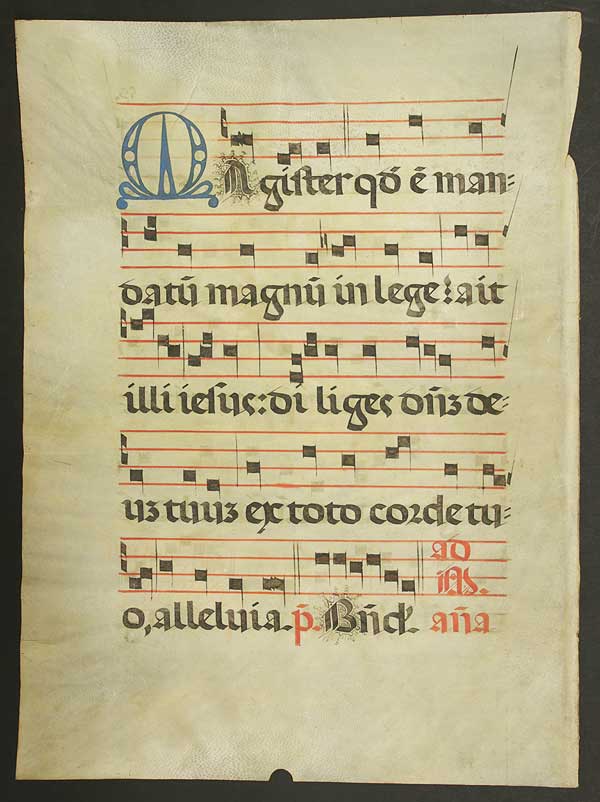 MAgister qđ ē man-
datū magnū in lege: ait
illi iesus: di liges dn̄ꝫ de-
uꝫ tuuꝫ ex toto corde tu-
ad
o, alleluia. p̄. Bn̄d. an̄a